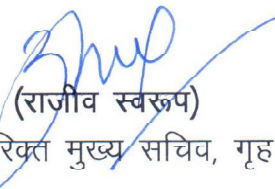 (राजीव स्वरूप)
रिक्त मुख्य सचिव, गृह